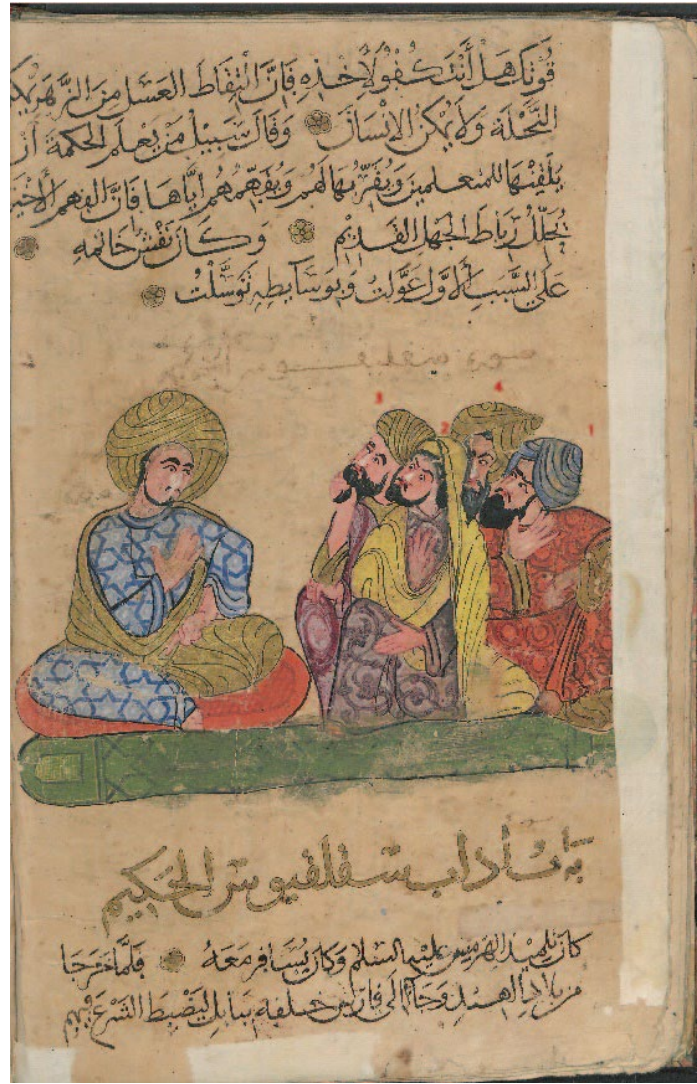 قُوتك هَل أنتَ كُفُو لأخذِهِ فَانَّ الْتِقَاط العَسَل مِنَ الزَّهرِ يمكن
النَّحْلَة وَلَا يُمكنُ الانْسانَ وَقَالَ سَبِيلُ مَنْ يَعْلَم الحِكمة أنْ
يُلَقِّنَهَا للمتعلمينَ وَيُقَرِّبُهَا لَهُم وَيُفَهِّمُهُم ايَّاهَا فَانَّ الفِهمَ الأخير
يُحَلِّلُ رِبَاطَ الجَهل القَدِيم وَكَانَ نَقْش خَاتمهِ
عَلَى السَّبَب الأوَّل عَوَّلت وَبِوَسَايطِهِ تَوَسَّلْتُ
3
4
2
1
اداب سقلفيوس الحَكِيم
كانَ تلميذ الهرمس عليه السلم وَكانَ يُسَافر مَعَهُ فَلمَّا خَرَجَا
من بلاد الهند وَجَاآ الَى فارس خلفه ببابل ليَضْبط الشَّرع فيهم